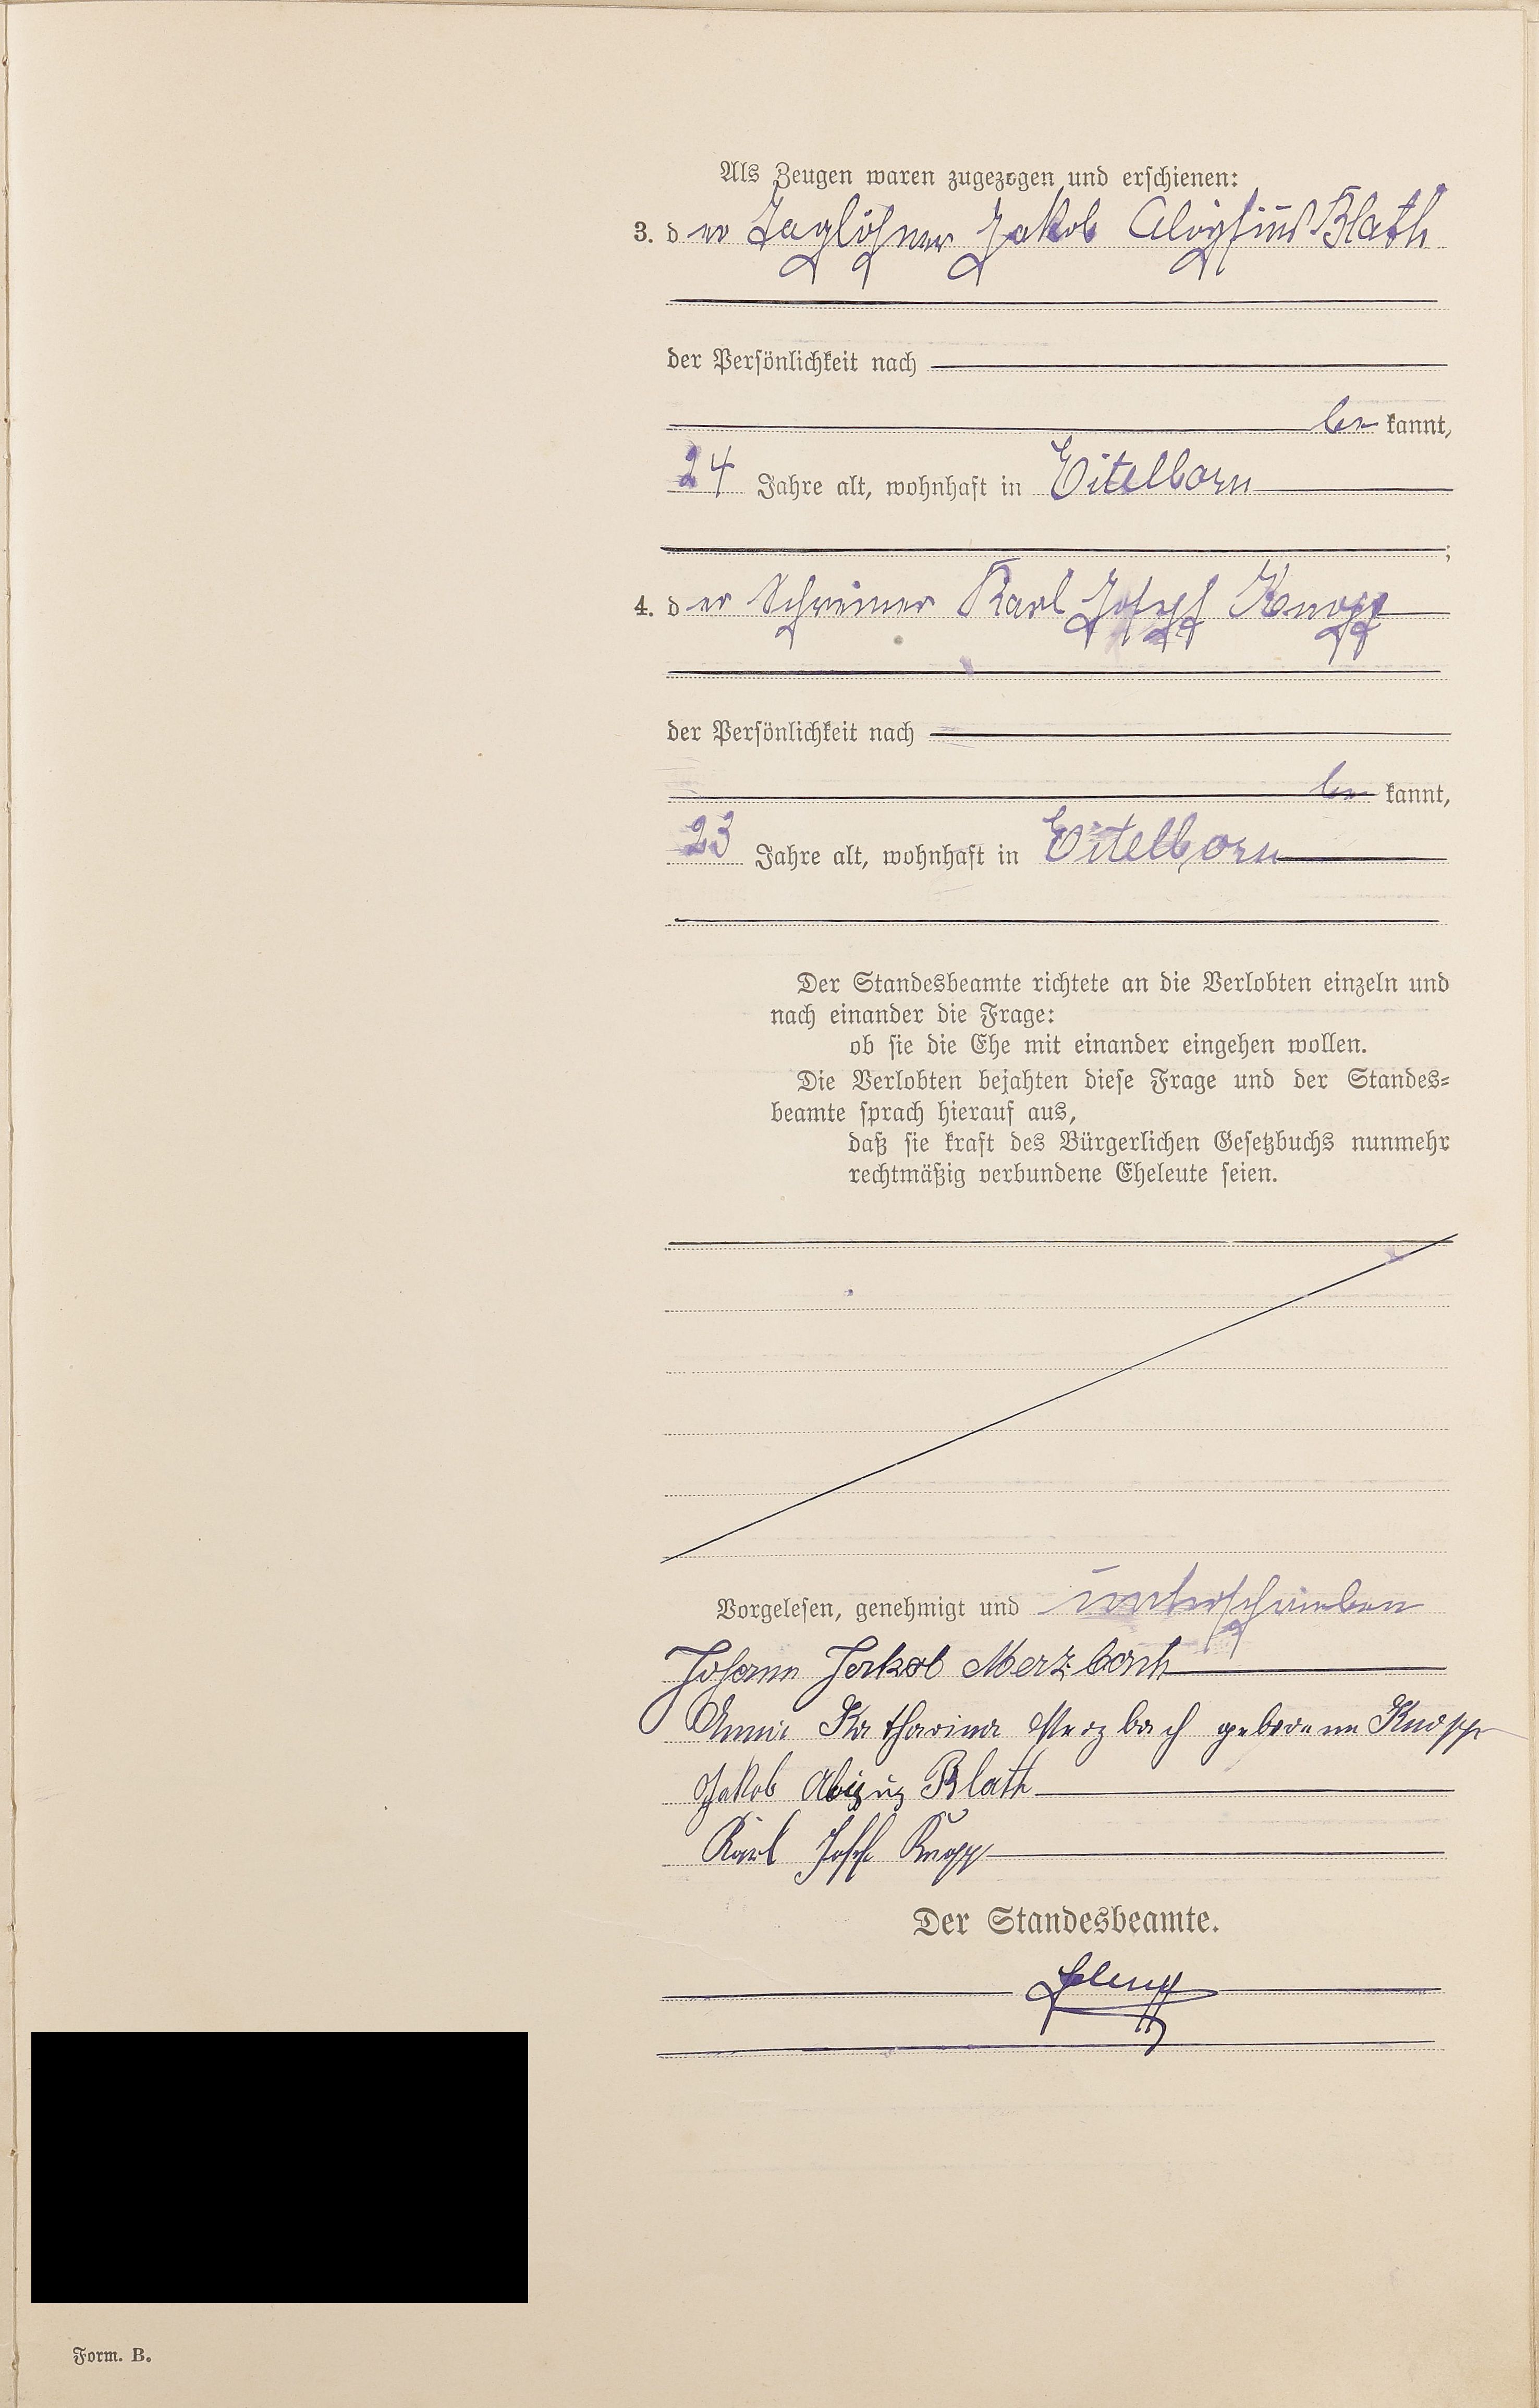 Als Zeugen waren zugezogen und erschienen:
3. der Taglöhner Jakob Aloysius Blath
der Persönlichkeit nach
be kannt,
24 Jahre alt, wohnhaft in Eitelborn
;
4. der Schreiner Karl Joseph Knopp
der Persönlichkeit nach
be kannt,
23 Jahre alt, wohnhaft in Eitelborn
Der Standesbeamte richtete an die Verlobten einzeln und
nach einander die Frage:
ob sie die Ehe mit einander eingehen wollen.
Die Verlobten bejahten diese Frage und der Standes-
beamte sprach hierauf aus,
daß sie kraft des Bürgerlichen Gesetzbuchs nunmehr
rechtmäßig verbundene Eheleute seien.
Vorgelesen, genehmigt und unterschrieben
Johann Jakob Merzbach
Anna Katharina Merzbach geborene Knopp
Jakob Blath
Karl Josef Knopp
Der Standesbeamte.
Form. B.